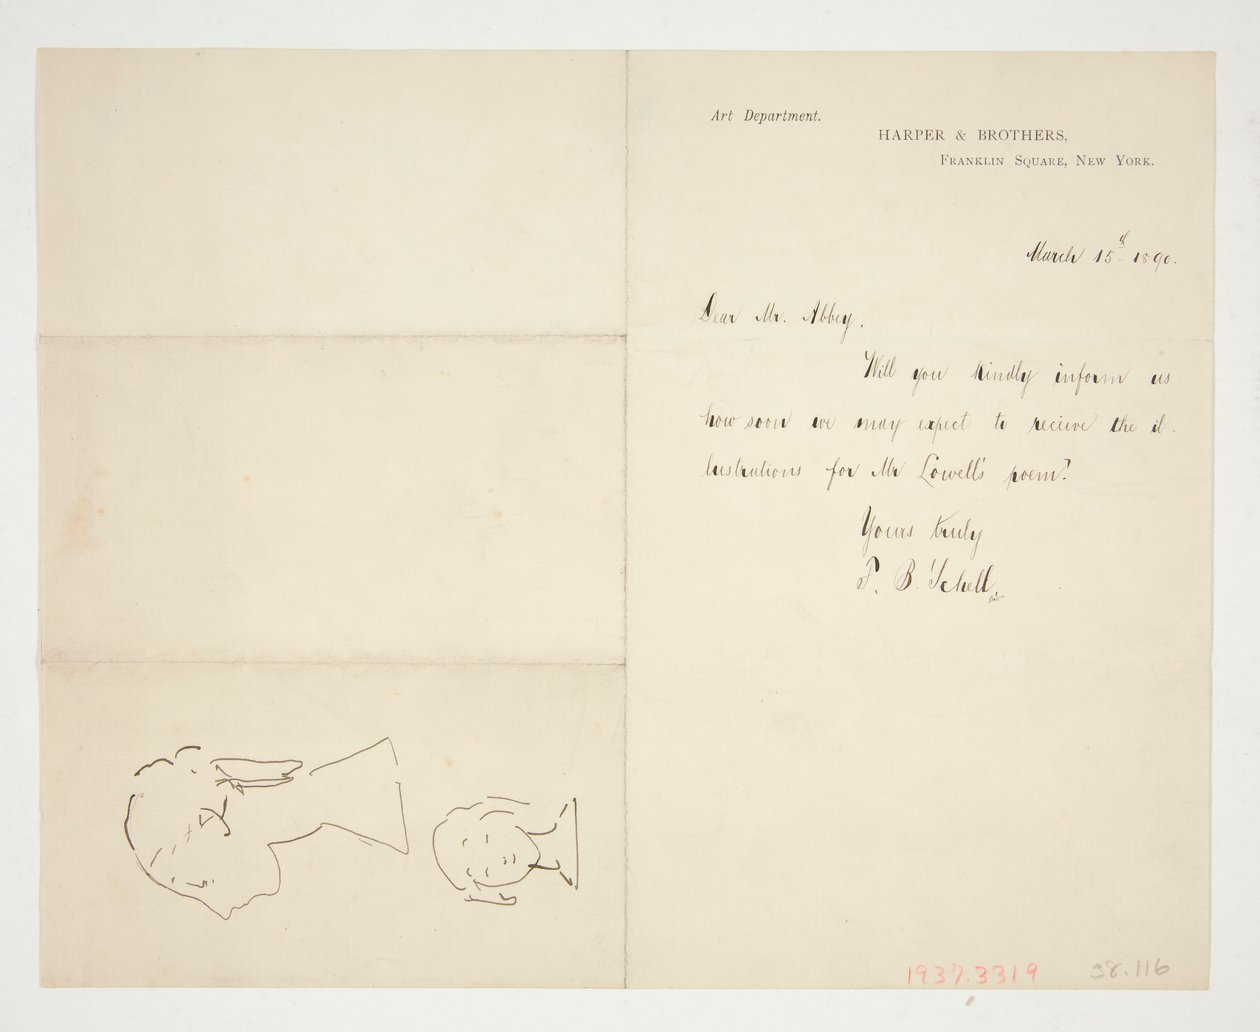 Art Department.
HARPER & BROTHERS.
FRANKLIN SQUARE, NEW YORK.
March 15th 1890.
Dear Mr. Abbey.
Will you kindly inform us
how soon we may expect to receive the il-
lustrations for Mr Lowell's poem?
Yours truly
F. B. Schell.
1937.3319
38.116